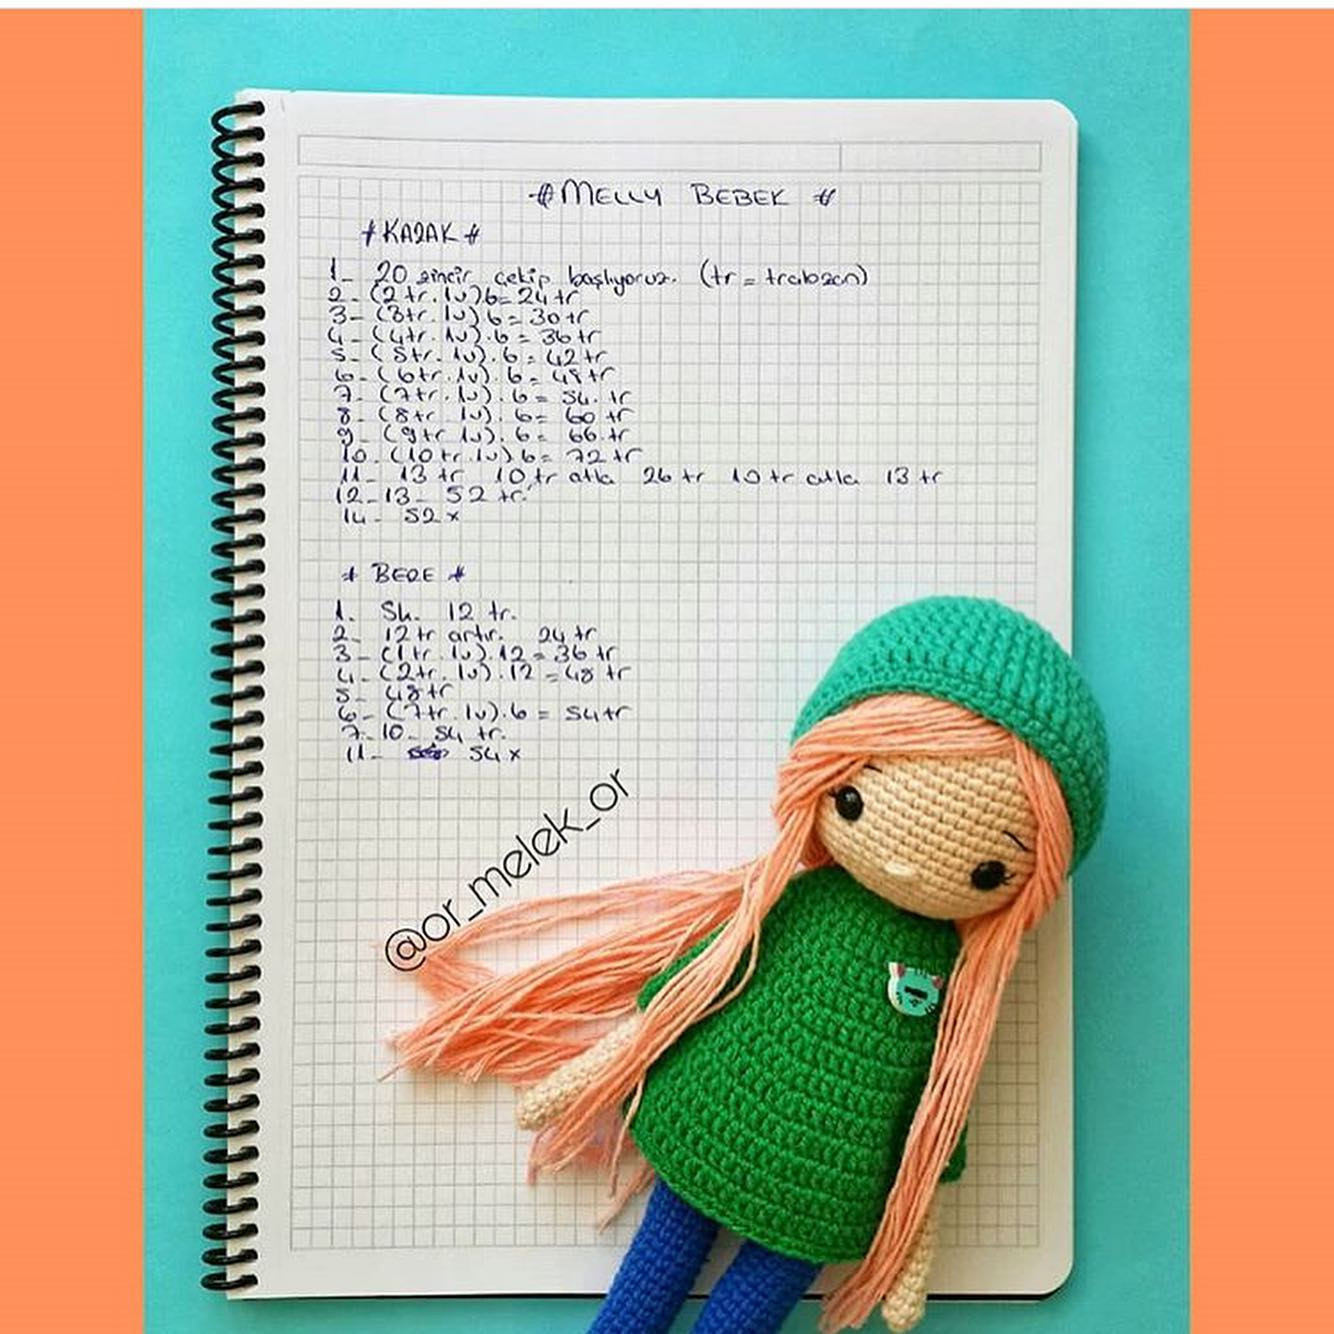 # MELLY BEBEK #
# KAZAK #
1- 20 zincir çekip başlıyoruz. (tr = trabzan)
2- (2tr. 1v)6= 24 tr
3- (3tr. 1v) 6 = 30 tr
4- (4tr. 1v). 6 = 36 tr
5- (5tr. 1v). 6 = 42 tr
6- (6tr. 1v). 6 = 48 tr
7- (7tr. 1v). 6 = 54. tr
8- (8tr. 1v). 6= 60 tr
9- (9tr 1v). 6= 66. tr
10- (10 tr. 1v) 6= 72 tr
11- 13 tr 10 tr atla 26 tr 10 tr atla 13 tr
12-13- 52 tr.
14- 52 x
# BERE #
1. Sh. 12 tr.
2- 12tr artır. 24 tr
3- (1tr. 1v). 12 = 36 tr
4- (2tr. 1v). 12 = 48 tr
5- 48 tr
6- (7tr. 1v). 6 = 54 tr
7-10- 54 tr.
11- 54 x
@or_melek_or